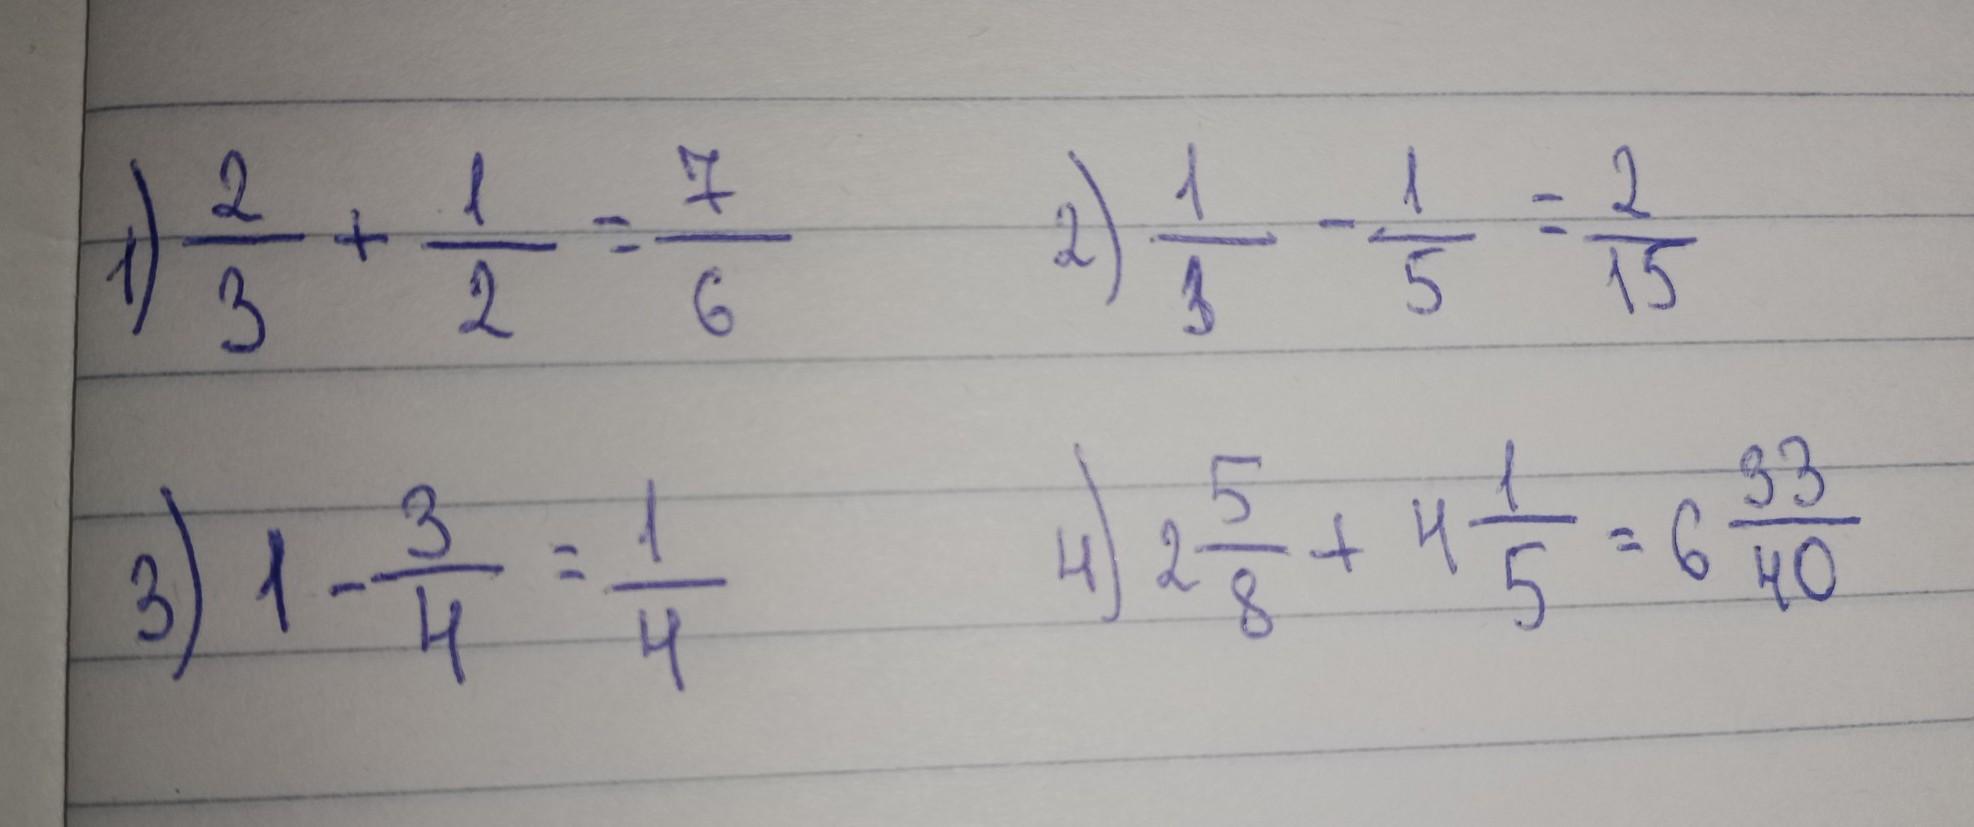 1) 2/3 + 1/2 = 7/6
2) 1/3 - 1/5 = 2/15
3) 1 - 3/4 = 1/4
4) 2 5/8 + 4 1/5 = 6 33/40